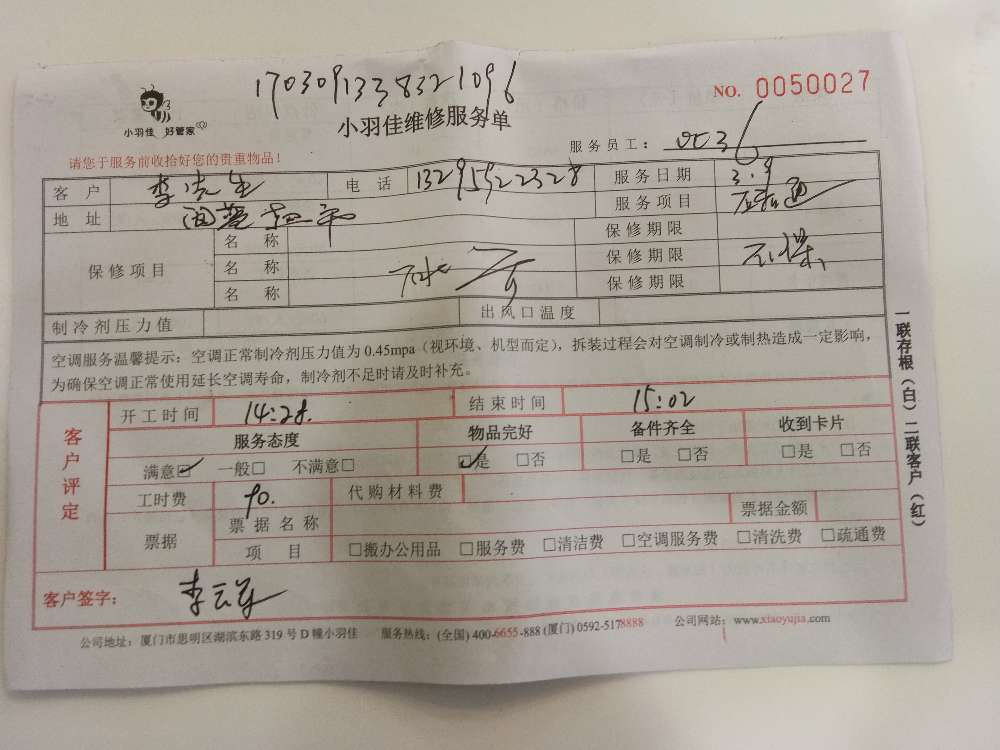 1703091338321096
NO. 0050027
小羽佳 好管家
小羽佳维修服务单
服务员工:
请您于服务前收拾好您的贵重物品!
客户 李先生 电话 13295922328 服务日期 3.9
地址 服务项目
保修项目 名称 保修期限
名称 保修期限 不保
名称 保修期限
制冷剂压力值 出风口温度
空调服务温馨提示:空调正常制冷剂压力值为0.45mpa(视环境、机型而定),拆装过程会对空调制冷或制热造成一定影响,
为确保空调正常使用延长空调寿命,制冷剂不足时请及时补充。
客户评定
开工时间 14:28. 结束时间 15:02
服务态度 物品完好 备件齐全 收到卡片
满意☑ 一般□ 不满意□ ☑是 □否 □是 □否 □是 □否
工时费 90. 代购材料费
票据 票据名称 票据金额
项目 □搬办公用品 □服务费 □清洁费 □空调服务费 □清洗费 □疏通费
客户签字:
公司地址:厦门市思明区湖滨东路319号D幢小羽佳 服务热线:(全国)400-6655-888(厦门)0592-5178888 公司网站:www.xiaoyujia.com
一联存根(白)二联客户(红)